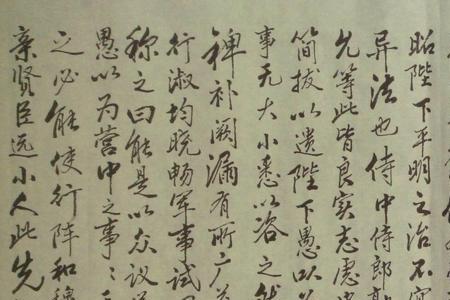 昭陛下平明之治不宜
异法也侍中侍郎郭
允等此皆良实志虑忠
简拔以遗陛下愚以为
事无大小悉以咨之然
裨补阙漏有所广益
行淑均晓畅军事试
称之曰能是以众议
愚以为营中之事
之必能使行阵和穆
亲贤臣远小人此先